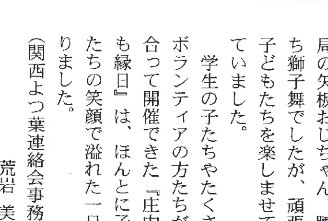 局の矢板おじちゃん
ち獅子舞でしたが、頑張
子どもたちを楽しませて
ていました。
学生の子たちやたくさ
ボランティアの方たちが
合って開催できた『庄内
も縁日』は、ほんとに子
たちの笑顔で溢れた一日
りました。
(関西よつ葉連絡会事務
荒岩 美